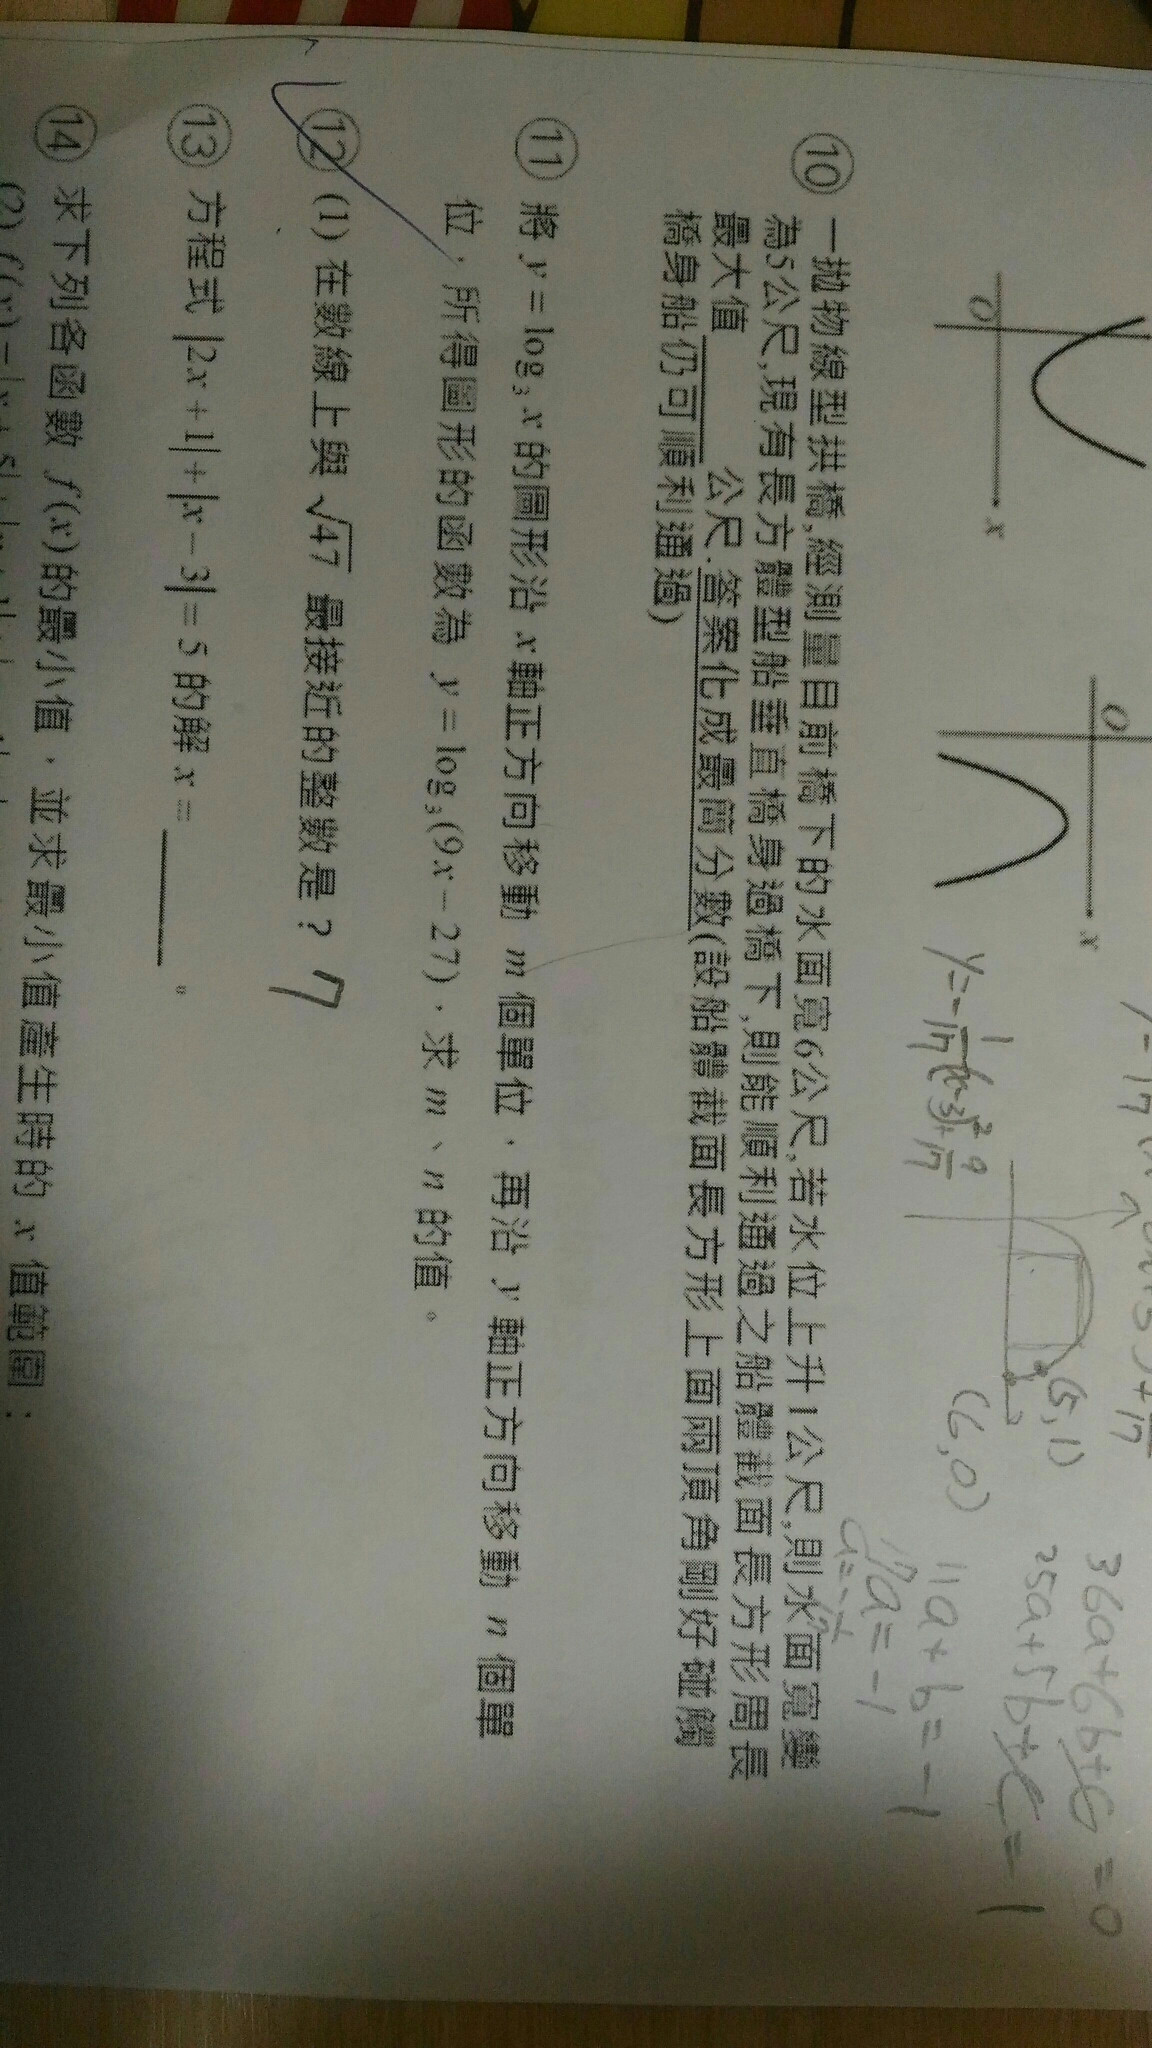 O
x
O
x
36a+6b+c=0
25a+5b+c=1
11a+b=-1
17a=-1
(5,1)
(6,0)
⑩ 一拋物線型拱橋,經測量目前橋下的水面寬6公尺,若水位上升1公尺,則水面寬變
為5公尺,現有長方體型船垂直橋身過橋下,則能順利通過之船體截面長方形周長
最大值 公尺.答案化成最簡分數(設船體截面長方形上面兩頂角剛好碰觸
橋身船仍可順利通過)
⑪ 將 y = log₃ x 的圖形沿 x 軸正方向移動 m 個單位,再沿 y 軸正方向移動 n 個單
位,所得圖形的函數為 y = log₃(9x−27),求 m、n 的值。
⑫ (1) 在數線上與 √47 最接近的整數是? 7
⑬ 方程式 |2x+1|+|x−3|=5 的解 x = ______ 。
⑭ 求下列各函數 f(x) 的最小值,並求最小值產生時的 x 值範圍: